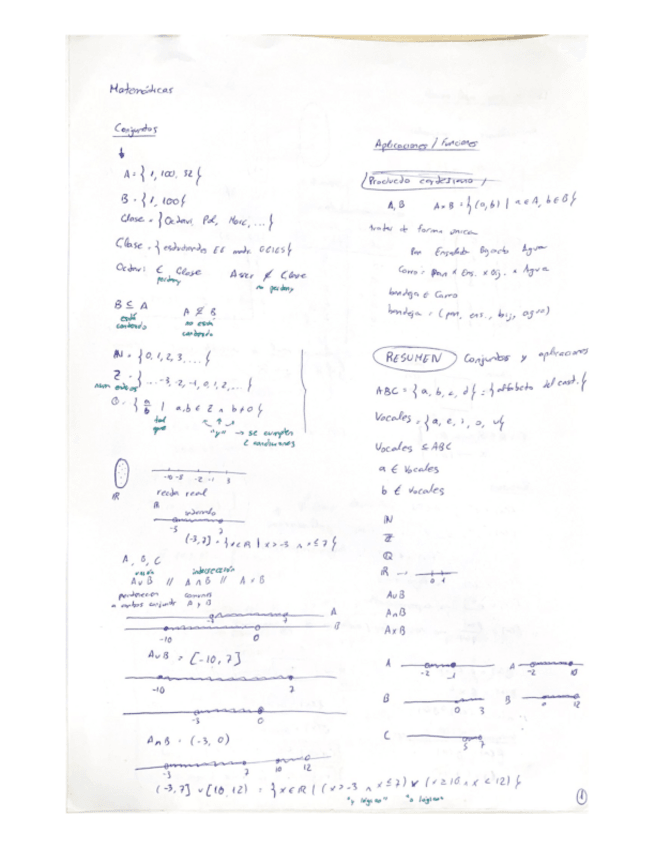 Matemáticas
Conjuntos
↓
A = { 1, 100, 32 }
B = { 1, 100 }
Clase = { Octavi, Pol, Marc, ... }
Clase = { estudiantes EE }
Octavi ∈ Clase
∉ Clase
B ⊆ A
está contenido
A ⊈ B
no está contenido
ℕ = { 0, 1, 2, 3, ... }
ℤ = { ... -3, -2, -1, 0, 1, 2, ... }
ℚ = { a/b | a, b ∈ ℤ ∧ b ≠ 0 }
tal que
"y" → se cumplen
2 condiciones
-2 -1 3
ℝ
recta real
ℝ
-3 7
(-3, 7] = { x ∈ ℝ | x > -3 ∧ x ≤ 7 }
A, B, C
unión
intersección
A ∪ B // A ∩ B // A × B
pertenecen
a ambos conjuntos
comunes
A y B
-3 7 A
-10 0 B
A ∪ B = [-10, 7]
-10 7
-3 0
A ∩ B = (-3, 0)
-3 7 10 12
(-3, 7] ∪ [10, 12) = { x ∈ ℝ | (x > -3 ∧ x ≤ 7) ∨ (x ≥ 10 ∧ x < 12) }
"y lógico" "o lógico"
Aplicaciones / Funciones
Producto cartesiano
A, B A × B = { (a, b) | a ∈ A, b ∈ B }
de forma única
Pan Ensalada Agua
Carro = Pan × Ens. × Bij. × Agua
bandeja ∈ Carro
bandeja = (pan, ens., bij, agua)
RESUMEN Conjuntos y aplicaciones
ABC = { a, b, c, d } = { alfabeto del cast. }
Vocales = { a, e, i, o, u }
Vocales ⊆ ABC
a ∈ Vocales
b ∉ Vocales
ℕ
ℤ
ℚ
ℝ
0 1
A ∪ B
A ∩ B
A × B
A -2 -1
A -2 10
B 0 3
B 0 12
C 5 7
1